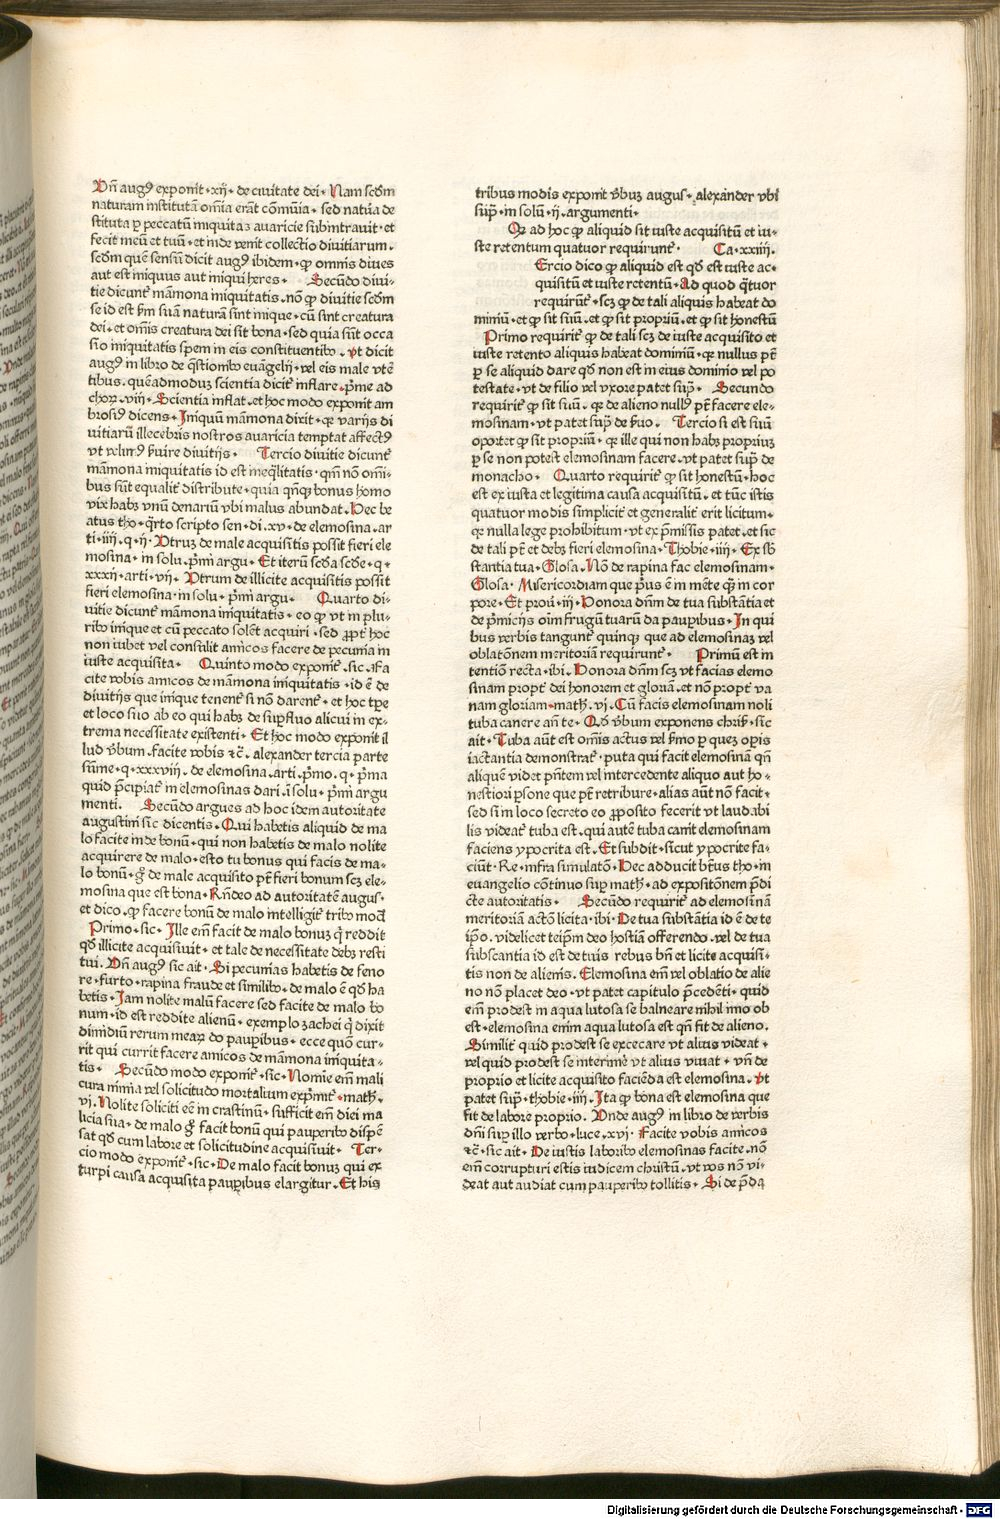 Vñ augꝰ exponit · xij · de ciuitate dei · Nam scd̄m
naturam institutā om̄ia erāt cōmūia · sed natura de
stituta ꝑ peccatū iniquitaꝫ auaricie subintrauit · et
fecit meū et tuū · et inde venit collectio diuitiarum ·
scd̄m quē sensū dicit augꝰ ibidem · ꝙ omnis diues
aut est iniquus aut iniqui heres · Secūdo diui-
tie dicunt᷑ māmona iniquitatis · nō ꝙ diuitie scd̄m
se id est ẜm suā naturā sint inique · cū sint creatura
dei · et om̄is creatura dei sit bona · sed quia sūt occa
sio iniquitatis spem in eis constituentibꝰ · vt dicit
augꝰ in libro de q̄stionibꝰ euāgelij · vel eis male vtē
tibus · quēadmoduꝫ scientia dicit᷑ inflare · p̄me ad
choꝝ · viij · Scientia inflat · et hoc modo exponit am
brosiꝰ dicens · Iniquū māmona dixit · qꝛ varijs di
uitiarū illecebris nostros auaricia temptat affectꝰ
vt velimꝰ ẜuire diuitijs · Tercio diuitie dicunt᷑
māmona iniquitatis id est ineq̄litatis · qm̄ nō om̄i-
bus sūt equalit᷑ distribute · quia q̄nqꝫ bonus homo
vix habꝫ vnū denariū vbi malus abundat · Hec be
atus tho · q̄rto scripto sen · di · xv · de elemosina · ar
ti · iiij · q · ij · Vtruꝫ de male acquisitis possit fieri ele
mosina · in solu · p̄mi argu · Et iterū scd̄a scd̄e · q ·
xxxij · arti · vij · Vtrum de illicite acquisitis possit
fieri elemosina · in solu · p̄mi argu · Quarto di-
uitie dicunt᷑ māmona iniquitatis · eo ꝙ vt in plu-
ribꝰ inique et cū peccato solēt acquiri · sed ꝓpt᷑ hoc
non iubet vel consulit amicos facere de pecunia in
iuste acquisita · Quinto modo exponit᷑ · sic · Fa
cite vobis amicos de māmona iniquitatis · id ē de
diuitijs que inique tenent᷑ si nō darent᷑ · et hoc tꝑe
et loco suo ab eo qui habꝫ de suꝑfluo alicui in ex-
trema necessitate existenti · Et hoc modo exponit il
lud v̄bum · facite vobis ⁊c̄ · alexander tercia parte
sūme · q · xxxviij · de elemosina · arti · p̄mo · q · p̄ma
quid p̄cipiat᷑ in elemosinas dari · ī solu · p̄mi argu
menti · Secūdo argues ad hoc idem autoritate
augustini sic dicentis · Qui habetis aliquid de ma
lo facite inde bonū · qui non habetis de malo nolite
acquirere de malo · esto tu bonus qui facis de ma-
lo bonū · gͦ de male acquisito pt̄ fieri bonum scꝫ ele-
mosina que est bona · Rn̄deo ad autoritatē augus ·
et dico · ꝙ facere bonū de malo intelligit᷑ tribꝰ mod̄
Primo · sic · Ille em̄ facit de malo bonuꝫ q̄ reddit
qd̄ illicite acquisiuit · et tale de necessitate debꝫ resti
tui · Vn̄ augꝰ sic ait · Si pecunias habetis de feno
re · furto · rapina fraude et similibꝰ · de malo ē qd̄ ha
betis · Iam nolite malū facere sed facite de malo bo
num · id est reddite alienū · exemplo zachei q̄ dixit
dimidiū rerum meaꝝ do pauꝑibus · ecce quō cur-
rit qui currit facere amicos de māmona iniquita-
tis · Secūdo modo exponit᷑ · sic · Nomīe em̄ mali
cura nimia vel solicitudo mortalium exp̄mit᷑ · math̄ ·
vj · Nolite soliciti eē in crastinū · sufficit em̄ diei ma
licia sua · de malo gͦ facit bonū qui pauꝑibꝰ dispē
sat qd̄ cum labore et solicitudine acquisiuit · Ter-
cio modo exponit᷑ · sic · De malo facit bonuꝫ qui ex
turpi causa acquisita pauꝑibus elargitur · Et his
tribus modis exponit v̄buꝫ augus · alexander vbi
suꝑ · in solū · ij · argumenti ·
Qꝫ ad hoc ꝙ aliquid sit iuste acquisitū et iu-
ste retentum quatuor requirunt᷑ · Ca · xxiiij ·
Ercio dico ꝙ aliquid est qd̄ est iuste ac-
quisitū et iuste retentū · Ad quod q̄tuor
requirūt᷑ · scꝫ ꝙ de tali aliquis habeat do
miniū · et ꝙ sit suū · et ꝙ sit propriū · et ꝙ sit honestū
Primo requirit᷑ ꝙ de tali scꝫ de iuste acquisito et
iuste retento aliquis habeat dominiū · qꝛ nullus pt̄
ꝑ se aliquid dare qd̄ non est in eius dominio vel po
testate · vt de filio vel vxore patet suꝑ · Secundo
requirit᷑ ꝙ sit suū · qꝛ de alieno nullꝰ pt̄ facere ele-
mosinam · vt patet suꝑ de ẜuo · Tercio si est suū
oportet ꝙ sit propriū · qꝛ ille qui non habꝫ propriuꝫ
ꝑ se non potest elemosinam facere · vt patet suꝑ de
monacho · Quarto requirit᷑ ꝙ sit honestū · hoc
est ex iusta et legitima causa acquisitū · et tūc istis
quatuor modis simplicit᷑ et generalit᷑ erit licitum ·
qꝛ nulla lege prohibitum · vt ex p̄missis patet · et sic
de tali pt̄ et debꝫ fieri elemosina · Thobie · iiij · Ex sb̄
stantia tua · Glosa · Nō de rapina fac elemosinam ·
Glosa · Misericordiam que p̄us ē in mēte q̄ꝫ in cor
pore · Et prou̅ · iij · Honora dn̄m de tua substātia et
de p̄micijs oīm frugū tuarū da pauꝑibus · In qui
bus verbis tangunt᷑ quinqꝫ que ad elemosinaꝫ vel
oblatōnem meritoriā requirunt᷑ · Primū est in
tentiō recta · ibi · Honora dn̄m scꝫ vt facias elemo
sinam propt᷑ dei honorem et gloriā · et nō propt᷑ va
nam gloriam · math̄ · vj · Cū facis elemosinam noli
tuba canere an̄ te · Qd̄ v̄bum exponens chris᷑ · sic
ait · Tuba aūt est om̄is actus vel ẜmo ꝑ quez oꝑis
iactantia demonstrat᷑ · puta qui facit elemosinā qn̄
aliquē videt p̄ntem vel intercedente aliquo aut ho-
nestiori ꝑsone que pt̄ retribure · alias aūt nō facit ·
sed si in loco secreto eo ꝓposito fecerit vt laudabi
lis videat᷑ tuba est · qui autē tuba canit elemosinam
faciens ypocrita est · Et subdit · sicut ypocrite fa-
ciūt · Re · infra simulatō · Hec adducit bt̄us tho · in
euangelio cōtinuo suꝑ math̄ · ad expositōnem p̄di
cte autoritatis · Secūdo requirit᷑ ad elemosinā
meritoriā actō licita · ibi · De tua substātia id ē de te
ip̄o · videlicet teip̄m deo hostiā offerendo · vel de tua
subscantia id est de tuis rebus bn̄ et licite acquisi-
tis non de alienis · Elemosina em̄ vel oblatio de alie
no nō placet deo · vt patet capitulo p̄cedēti · quid
em̄ prodest in aqua lutosa se balneare nihil īmo ob
est · elemosina enim aqua lutosa est qn̄ fit de alieno ·
Similit᷑ quid prodest se excecare vt alius videat ·
vel quid prodest se interimē vt alius viuat · vn̄ de
proprio et licite acquisito faciēda est elemosina · vt
patet suꝑ · thobie · iiij · Ita ꝙ bona est elemosina que
fit de labore proprio · Vnde augꝰ in libro de verbis
dn̄i suꝑ illo verbo · luce · xvj · Facite vobis amicos
⁊c̄ · sic ait · De iustis laboribꝰ elemosinas facite · nō
em̄ corrupturi estis iudicem christū · vt vos nō vi-
deat aut audiat cum pauperibꝰ tollitis · Si de p̄da
Digitalisierung gefördert durch die Deutsche Forschungsgemeinschaft - DFG